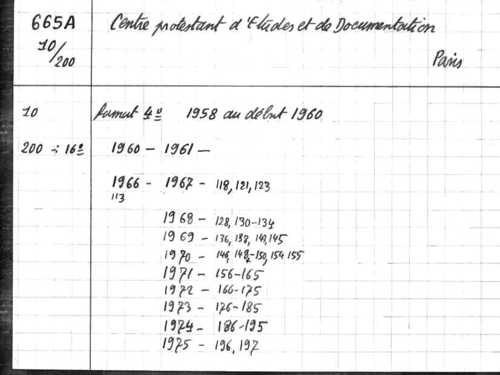 665A Centre protestant d'Etudes et de Documentation
10/200
Paris
10 format 4º 1958 au début 1960
200 ÷ 16º 1960 - 1961 -
1966 - 1967 - 118, 121, 123
113
1968 - 128, 130-134
1969 - 136, 138, 140, 145
1970 - 146, 148-150, 154 155
1971 - 156-165
1972 - 166-175
1973 - 176-185
1974 - 186-195
1975 - 196, 197